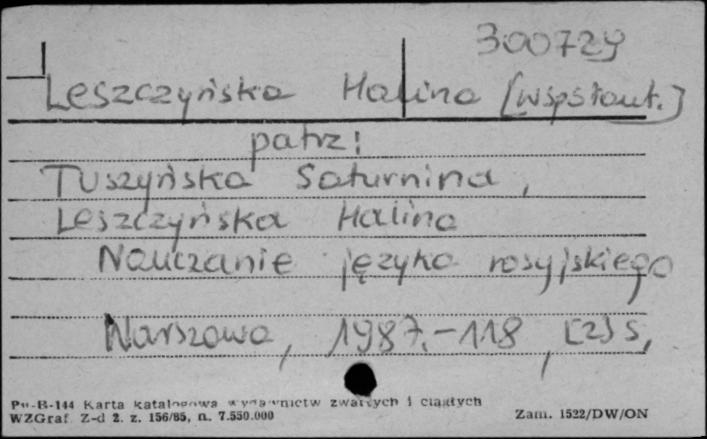 300729
Leszczyńska Halina [współaut.]
patrz:
Tuszyńska Saturnina,
Leszczyńska Halina
Nauczanie języka rosyjskiego
Warszawa, 1987.-118, [2] s,
Pu-B-144 Karta katalogowa wydawnictw zwartych i ciągłych
WZGraf. Z-d 2. z. 156/85, n. 7.550.000
Zam. 1522/DW/ON